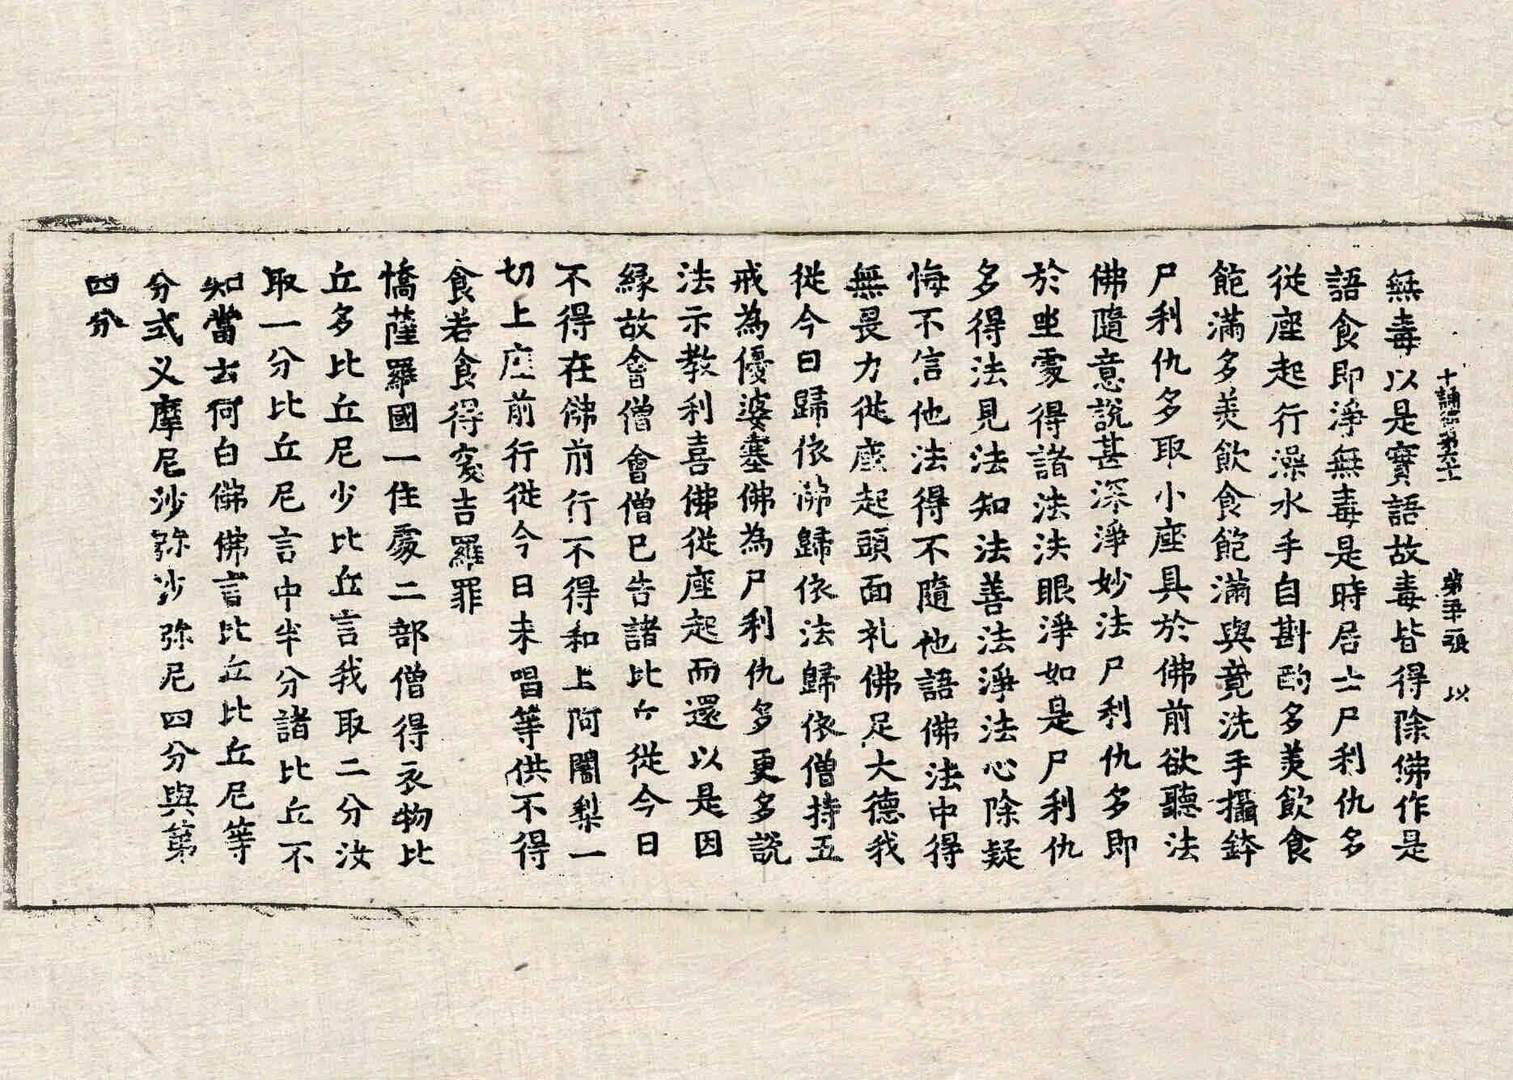 十誦律第六十一 第二十張 以
無毒以是實語故毒皆得除佛作是
語食即淨無毒是時居士尸利仇多
從座起行澡水手自斟酌多美飲食
飽滿多美飲食飽滿與竟洗手攝鉢
尸利仇多取小座具於佛前欲聽法
佛隨意說甚深淨妙法尸利仇多即
於坐處得諸法法眼淨如是尸利仇
多得法見法知法善法淨法心除疑
悔不信他法得不隨他語佛法中得
無畏力從座起頭面礼佛足大德我
從今日歸依佛歸依法歸依僧持五
戒為優婆塞佛為尸利仇多更多說
法示教利喜佛從座起而還以是因
緣故會僧會僧已告諸比丘從今日
不得在佛前行不得和上阿闍梨一
切上座前行從今日未唱等供不得
食若食得突吉羅罪
憍薩羅國一住處二部僧得衣物比
丘多比丘尼少比丘言我取二分汝
取一分比丘尼言中半分諸比丘不
知當云何白佛佛言比丘比丘尼等
分式叉摩尼沙弥沙弥尼四分與第
四分